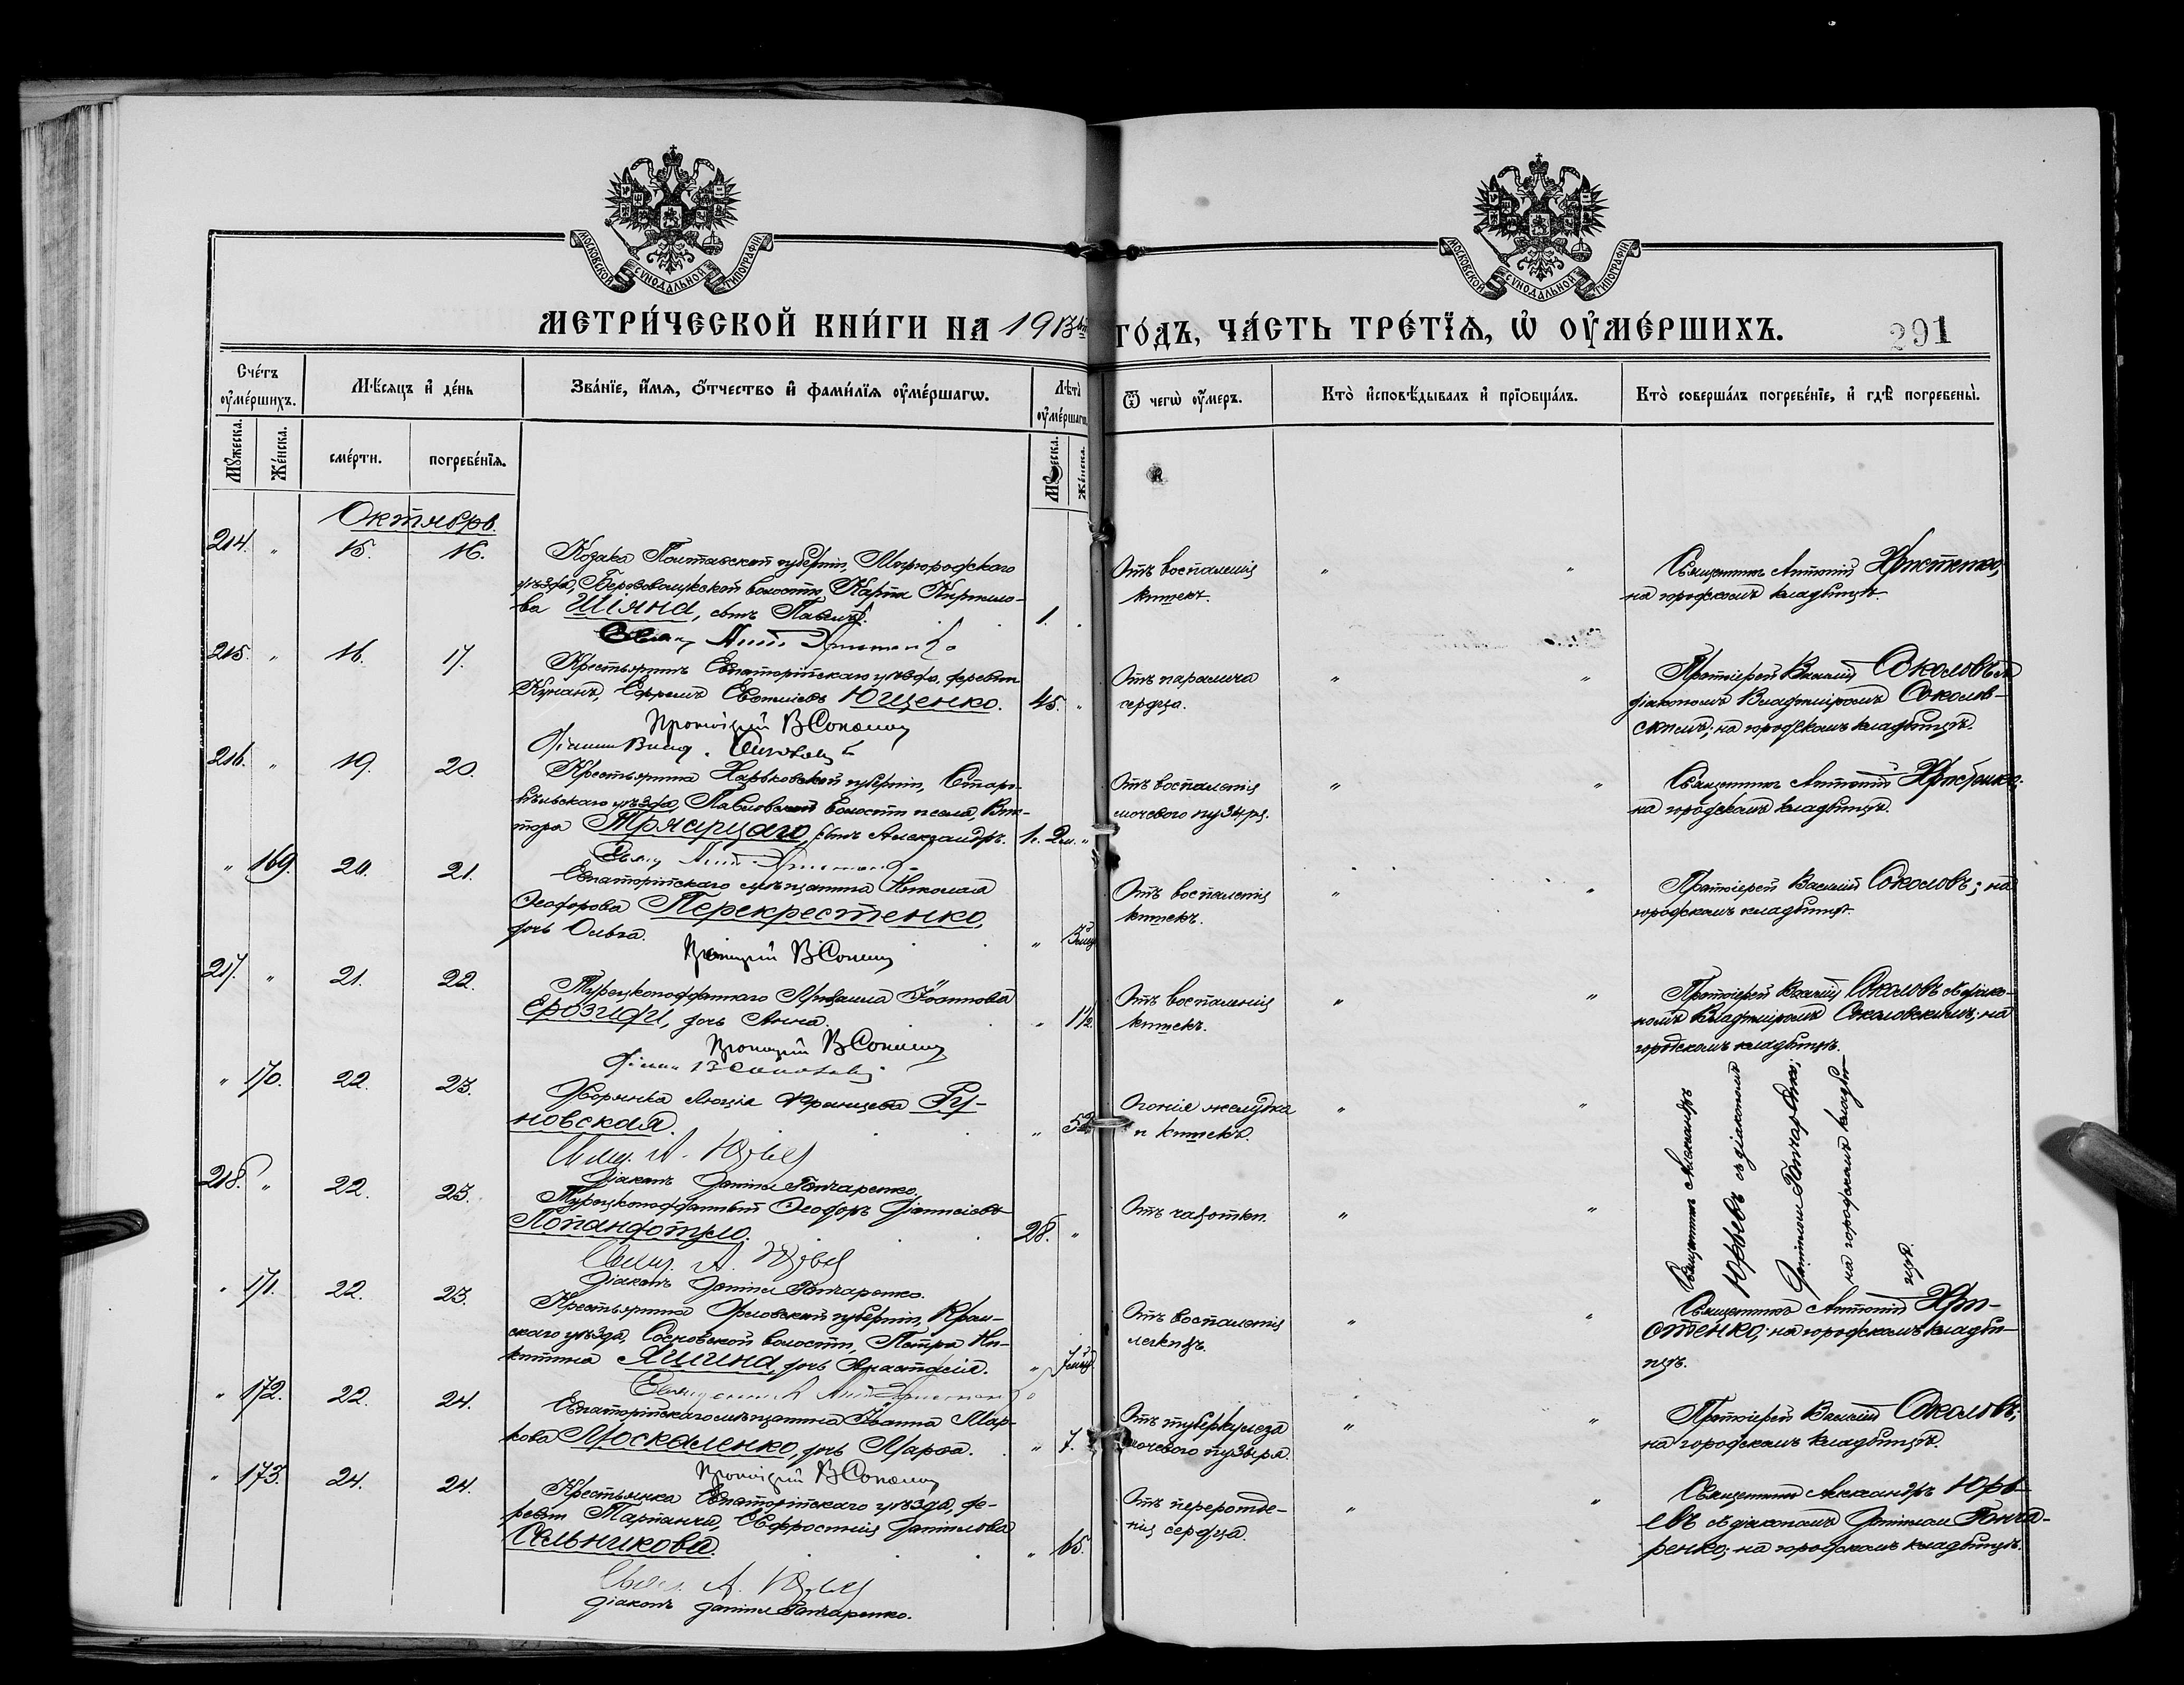 МОСКОВСКОЙ СѴНОДАЛЬНОЙ ТИПОГРАФІИ
МОСКОВСКОЙ СѴНОДАЛЬНОЙ ТИПОГРАФІИ
МЕТРИ́ЧЕСКОЙ КНИ́ГИ НА 1913й ГО́ДЪ, ЧА́СТЬ ТРЕ́ТЇѦ, Ѡ҆ ОУ҆МЕ́РШИХЪ.
291
Сче́тъ оу҆ме́ршихъ.
Мꙋ́жеска.
Же́нска.
Мѣ́сяцъ и҆ де́нь
сме́рти.
погребе́нїѧ.
Зва́нїе, и҆́мѧ, ѻ҆́тчество и҆ фами́лїѧ оу҆ме́ршагѡ.
Лѣ́та̀ оу҆ме́ршагѡ
Мꙋ́жеска.
Же́нска.
Ѿ чегѡ̀ оу҆́меръ.
Кто̀ и҆сповѣ́дывалъ и҆ прїѻбща́лъ.
Кто̀ соверша́лъ погребе́нїе, и҆ гдѣ̀ погребены̀.
Октябрь.
214. " 15. 16.
Козака Полтавской губерніи, Миргородскаго
уѣзда, Березоволукской волости, Карпа Кирило-
ва Шіяна, сынъ Павелъ.
1.
Отъ воспаленія
кишекъ.
" "
Священникъ Антоній Христенко;
на городскомъ кладбищѣ.
215. " 16. 17.
Крестьянинъ Евпаторійскаго уѣзда, деревни
Кунанъ, Ефремъ Евфиміевъ Ющенко.
45. "
Протоіерей В Соколовъ
Отъ паралича
сердца.
" "
Протоіерей Василій Соколовъ съ
діакономъ Владиміромъ Соколов-
скимъ; на городскомъ кладбищѣ.
216. " 19. 20.
Крестьянина Харьковской губерніи, Старо-
бѣльскаго уѣзда, Павловской волости и села, Вик-
тора , сынъ Александръ.
1г. 2м. "
Отъ воспаленія
мочевого пузыря.
" "
Священникъ Антоній Христенко;
на городскомъ кладбищѣ.
" 169. 20. 21.
Евпаторійскаго мѣщанина Николая
Ѳеодорова Перекрестенко,
дочь Ольга.
"
Протоіерей В Соколовъ
Отъ воспаленія
кишекъ.
" "
Протоіерей Василій Соколовъ; на
городскомъ кладбищѣ.
217. " 21. 22.
Турецкоподданнаго Михаила Іоаннова
Ерозиди, дочь Анна.
" 1½
Протоіерей В Соколовъ
Отъ воспаленія
кишекъ.
" "
Протоіерей Василій Соколовъ съ діако-
номъ Владиміромъ Соколовскимъ; на
городскомъ кладбищѣ.
" 170. 22. 23.
Дворянка Люція Францева Ру-
новская.
"
Свящ. А. Юрьев
Діаконъ Даніилъ Гончаренко.
желудка
и кишекъ.
" "
Священникъ Александръ
Юрьевъ съ діакономъ
Даніиломъ Гончаренко;
на городскомъ кладби-
щѣ.
218. " 22. 23.
Турецкоподданный Ѳеодоръ Діонисіевъ
Попандопуло.
28. "
Свящ. А. Юрьев
Діаконъ Даніилъ Гончаренко.
Отъ чахотки.
" "
" 171. 22. 23.
Крестьянина Орловской губерніи, Кром-
скаго уѣзда, Сосновской волости, Петра Ни-
китина Яшина, дочь Анастасія.
"
Отъ воспаленія
легкихъ.
" "
Священникъ Антоній Хри-
стенко; на городскомъ кладби-
щѣ.
" 172. 22. 24.
Евпаторійскаго мѣщанина Іоанна Мар-
кова Москаленко, дочь Марѳа.
" 7.
Протоіерей В Соколовъ
Отъ туберкулеза
мочевого пузыря.
" "
Протоіерей Василій Соколовъ;
на городскомъ кладбищѣ.
" 173. 24. 24.
Крестьянка Евпаторійскаго уѣзда, де-
ревни Тарпанчи, Евфросинія Даніилова
Сальникова.
" 65.
Свящ. А. Юрьев
Діаконъ Даніилъ Гончаренко.
Отъ перерожде-
нія сердца.
" "
Священникъ Александръ Юрь-
евъ съ діакономъ Даніиломъ Гонча-
ренко; на городскомъ кладбищѣ.